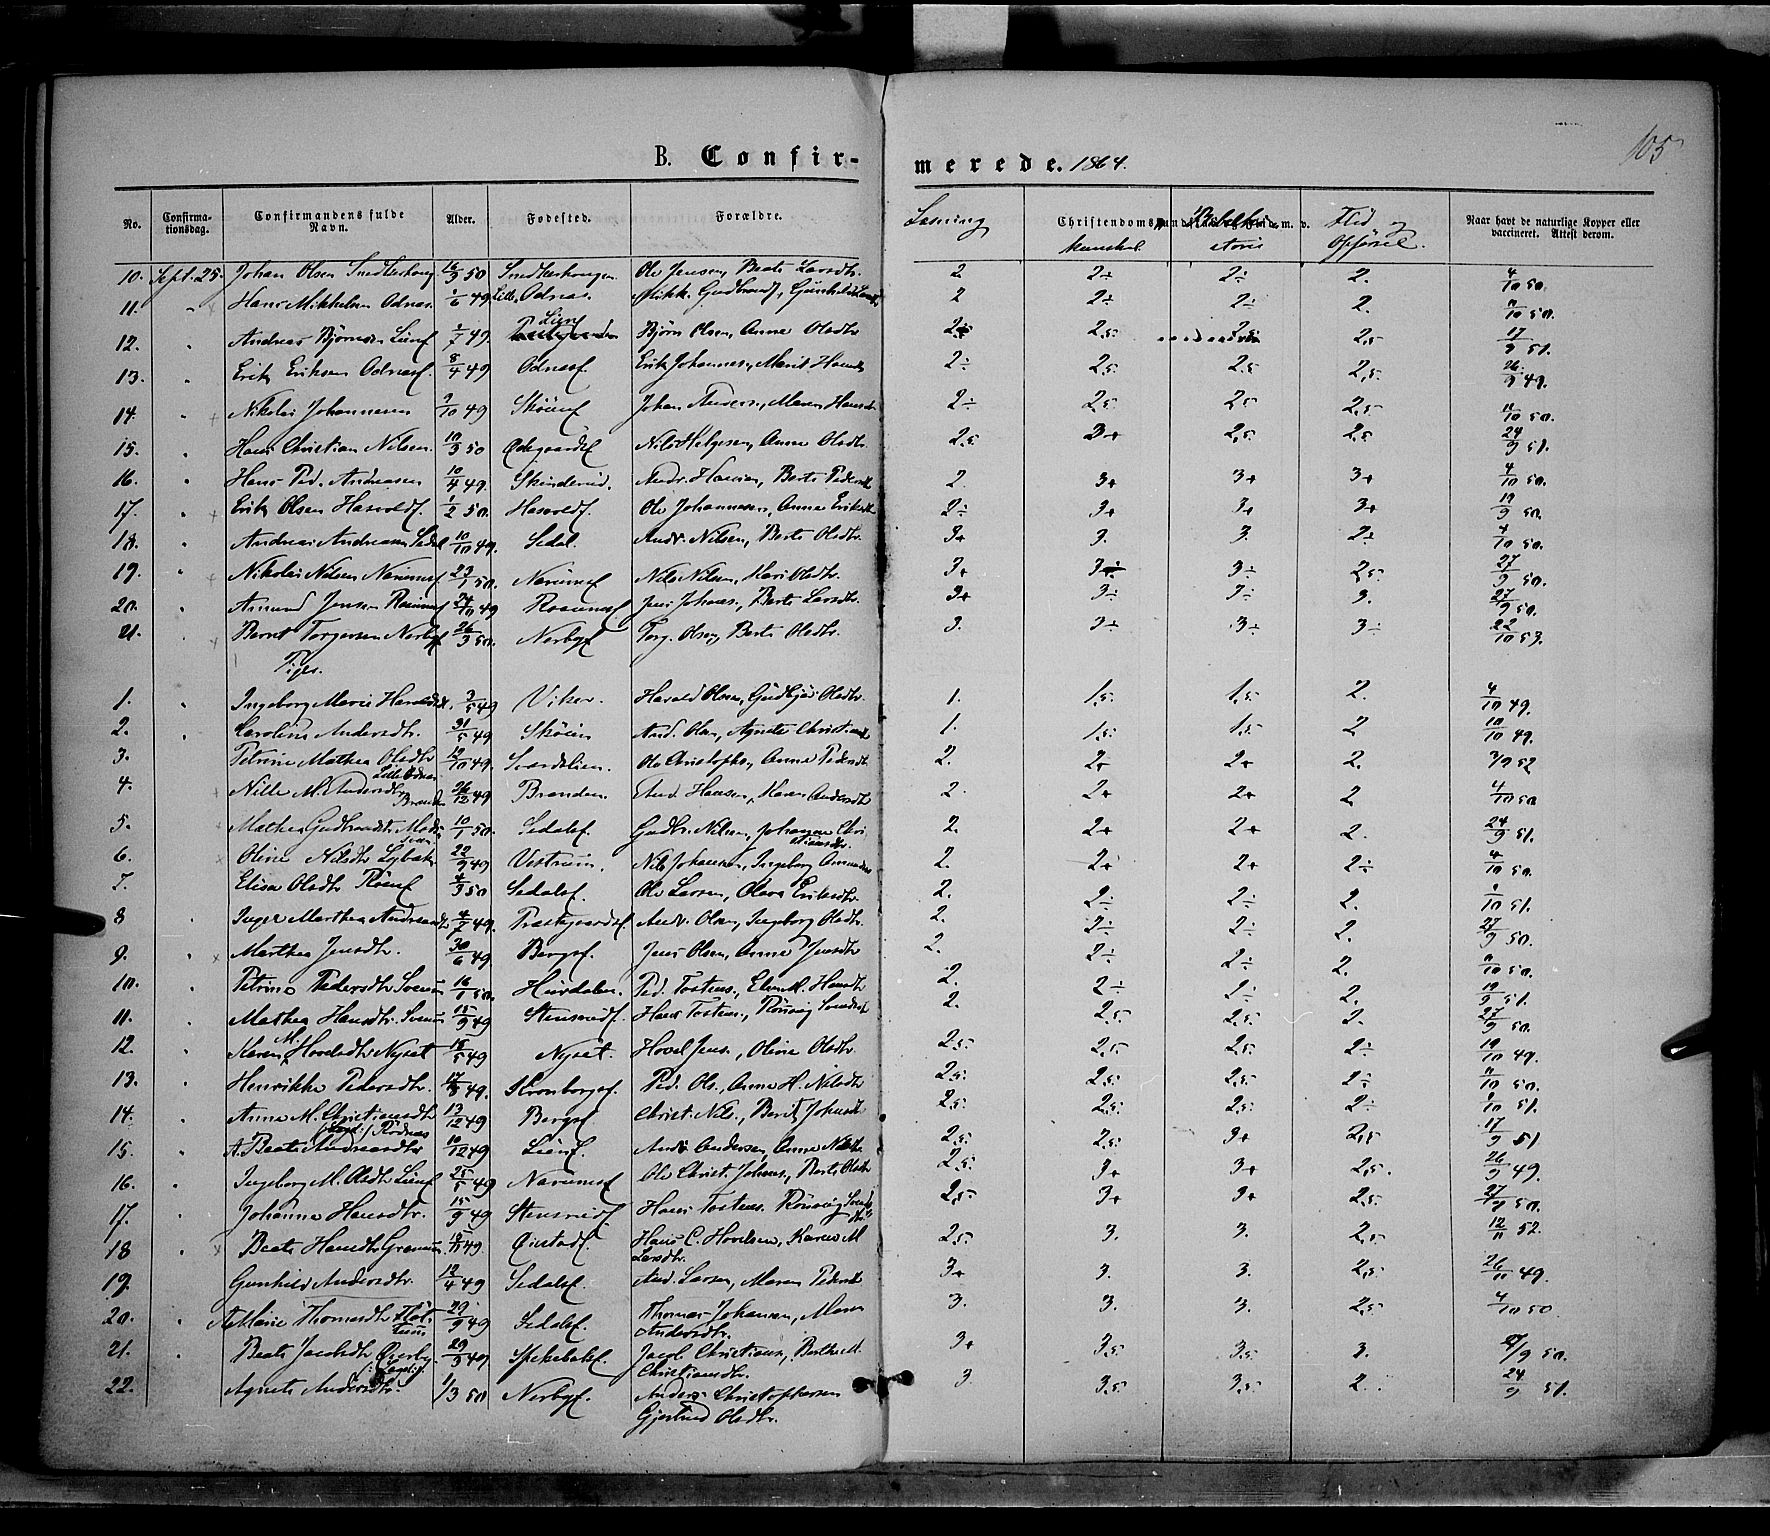 105
B. Confirmerede. 1864.
No. Confirmationsdag. Confirmandens fulde Navn. Alder. Fødested. Forældre. Læsning Christendomskundskab Bibelhistorie Flid og Opførsel. Naar havt de naturlige Kopper eller vaccineret. Attest derom.
10. Sept. 25. Johan Olsen 16/3 50 Ole Jensen, Beate Larsdtr. 2. 2÷ 2÷ 2. 4/10 50.
11. " Hans Mikkelsen Odnæs 1/6 49 Lille Odnæs. Mikk. Gudbrands, Gunhild 2 2÷ 2÷ 2. 11/10 50.
12. " Andreas Bjørnsen Lienf 1/7 49. Lienf Bjørn Olsen, Anne Olsdtr 2,5 2,5 2,5 17/9 51.
13. " Erik Eriksen Odnæsf. 8/4 49 Odnæsf. Erik Johannes., Marit Hansdtr 2÷ 2,5 2,5 2,5. 26/9 49.
14. " Nikolai Johannesen 9/10 49 Skøienf Johan Anders., Maren Hansdtr 2÷ 2,5 2,5 2,5. 11/10 50.
15. " Hans Christian Nilsen. 10/3 50 Ødegaardsf Nils Helgesen, Anne Olsdtr. 2,5. 3+ 2,5. 2,5 24/9 51.
16. " Hans Ped. Andreasen 10/4 49. Skinderud. Andr. Hansen, Berte Pedersdtr 2. 3+ 3+ 3+ 4/10 50.
17. " Erik Olsen Hasvoldf. 1/2 50. Hasvoldf. Ole Johannesen, Anne Eriksdtr 2÷ 3+ 3+ 3+ 19/9 50.
18. " Andreas Andreasen Sedal 10/10 49. Sedal. Andr. Nilsen, Berte Olsdtr. 3+ 3. 3. 2÷ 4/10 50.
19. " Nikolai Nilsen Narumsf 23/1 50. Narumsf Nils Nilsen, Mari Olsdtr. 3+ 3÷ 3÷ 2,5. 27/9 50.
20. " Amund Jensen 24/10 49 Jens Johans., Berte Larsdtr. 3+ 3÷ 3÷ 3. 27/9 50.
21. " Bernt Torgersen Nerbyf 26/3 50. Nerbyf Torg. Olsen, Berte Olsdtr. 3. 3÷ 3÷ 3÷ 22/10 53.
Piger.
1. " Ingeborg Marie Haraldsdtr. 3/5 49 Viker. Harald Olsen, Gudbjør Olsdtr. 1. 1,5. 1,5. 2. 4/10 49.
2. " Caroline Andersdtr. 31/5 49 Skøien And. Olsen, Agnete Christiansdtr 1. 1,5. 1,5. 2 10/10 49.
3. Petrine Mathea Olsdtr 12/10 49. Sværdalien. Ole Christophers., Anne Pedersdtr 2. 2+ 2+ 2. 3/9 52
4. Nille M. Andersdtr Lille Odnæs Branden 26/12 49 Branden. And. Hansen, Karen Andersdtr 2. 2+ 2+ 2 4/10 50
5. Mathea Gudbrandsdtr 10/1 50. Sedalsf. Gudbr. Nilsen, Johanne Christiansdtr. 2. 2+ 2+ 2. 24/9 51.
6. Oline Nilsdtr Lybæk 22/9 49 Vestrum. Nils Johansen, Ingeborg Amundsdtr 2. 2+ 2+ 2÷ 4/10 50.
7. Elise Olsdtr 4/3 50 Sedalsf. Ole Larsen, Olava Eriksdtr. 2. 2÷ 2÷ 2. 9/10 51.
8 Inger Marthea Andreasdtr 4/7 49. Præstgaardsf. Andr. Olsen, Ingeborg Olsdtr. 2. 2÷ 2÷ 2. 27/9 50.
9. " Marthea Jensdtr. 30/6 49 Bergsf. Jens Olsen, Anne Jensdtr 2. 2÷ 2÷ 2. 11/10 50.
10. " Petrine Pedersdtr 16/1 50. Hurdalen. Ped. Tostens., Elen M. Hansdtr 2. 2÷ 2÷ 2. 19/9 51.
11. " Mathea Hansdtr. 15/9 49 Stensrudf. Hans Tostens., Rønnaug Svendsdtr 2. 2,5. 2,5. 2. 27/9 50.
12. " Karen M. Hovelsdtr Nyset 18/5 49 Nyset. Hovel Jens., Oline Olsdtr. 2,5. 2,5. 2,5. 2÷ 19/10 49.
13. " Henrikke Pedersdtr. 17/8 49. Kronborgsf. Ped. Ols., Anne H. Nilsdtr 2,5. 2,5 2,5. 2÷ 11/10 50.
14. " Anne M. Christiansdtr 13/12 49 Bergsf. Christ. Nils., Berit Johansdtr 2,5. 2,5. 2,5. 2÷ 9/10 51.
15. " A. Beate Andreasdtr (Land.) Rødnæs 10/12 49 Lienf. Andr. Andersen, Anne Nilsdtr. 2,5. 2,5. 3+ 2,5 17/9 51
16. " Ingeborg M. Olsdtr Lienf 25/5 49 Narumsf. Ole Christ. Johans., Berte Olsdtr 2,5. 3+ 3+ 2,5. 26/9 49.
17. " Johanne Hansdtr. 15/9 49 Stensrudf. Hans Tostens. Rønnaug Svendsdtr 2,5. 3+ 3+ 2,5. 27/9 50.
18 " Beate Hansdtr 18/11 49. Øistadf. Hans C. Hovelsen, Karen M. Larsdtr. 2,5. 3. 3. 2,5 12/11 52.
19. " Gunhild Andersdtr. 12/4 49 Sedalsf. And. Larsen, Maren Pedersdtr 3+ 3. 3. 2,5. 26/11 49.
20. " A. Marie Thomasdtr 29/9 49 Sedalsf. Thomas Johansen, Maren Andersdtr. 3. 3. 3. 2,5 4/10 50
21. " Beate Jacobsdtr Øverby 29/3 49 Jacob Christians., Berthe M. Christiansdtr. 3+ 3,5 3,5. 3. 27/9 50.
22. Agnete Andersdtr. (Land.) 1/3 50 Nerbyf. Anders Christophersen Gjertrud Olsdtr. 3 3,5 3,5 2. 24/9 51.